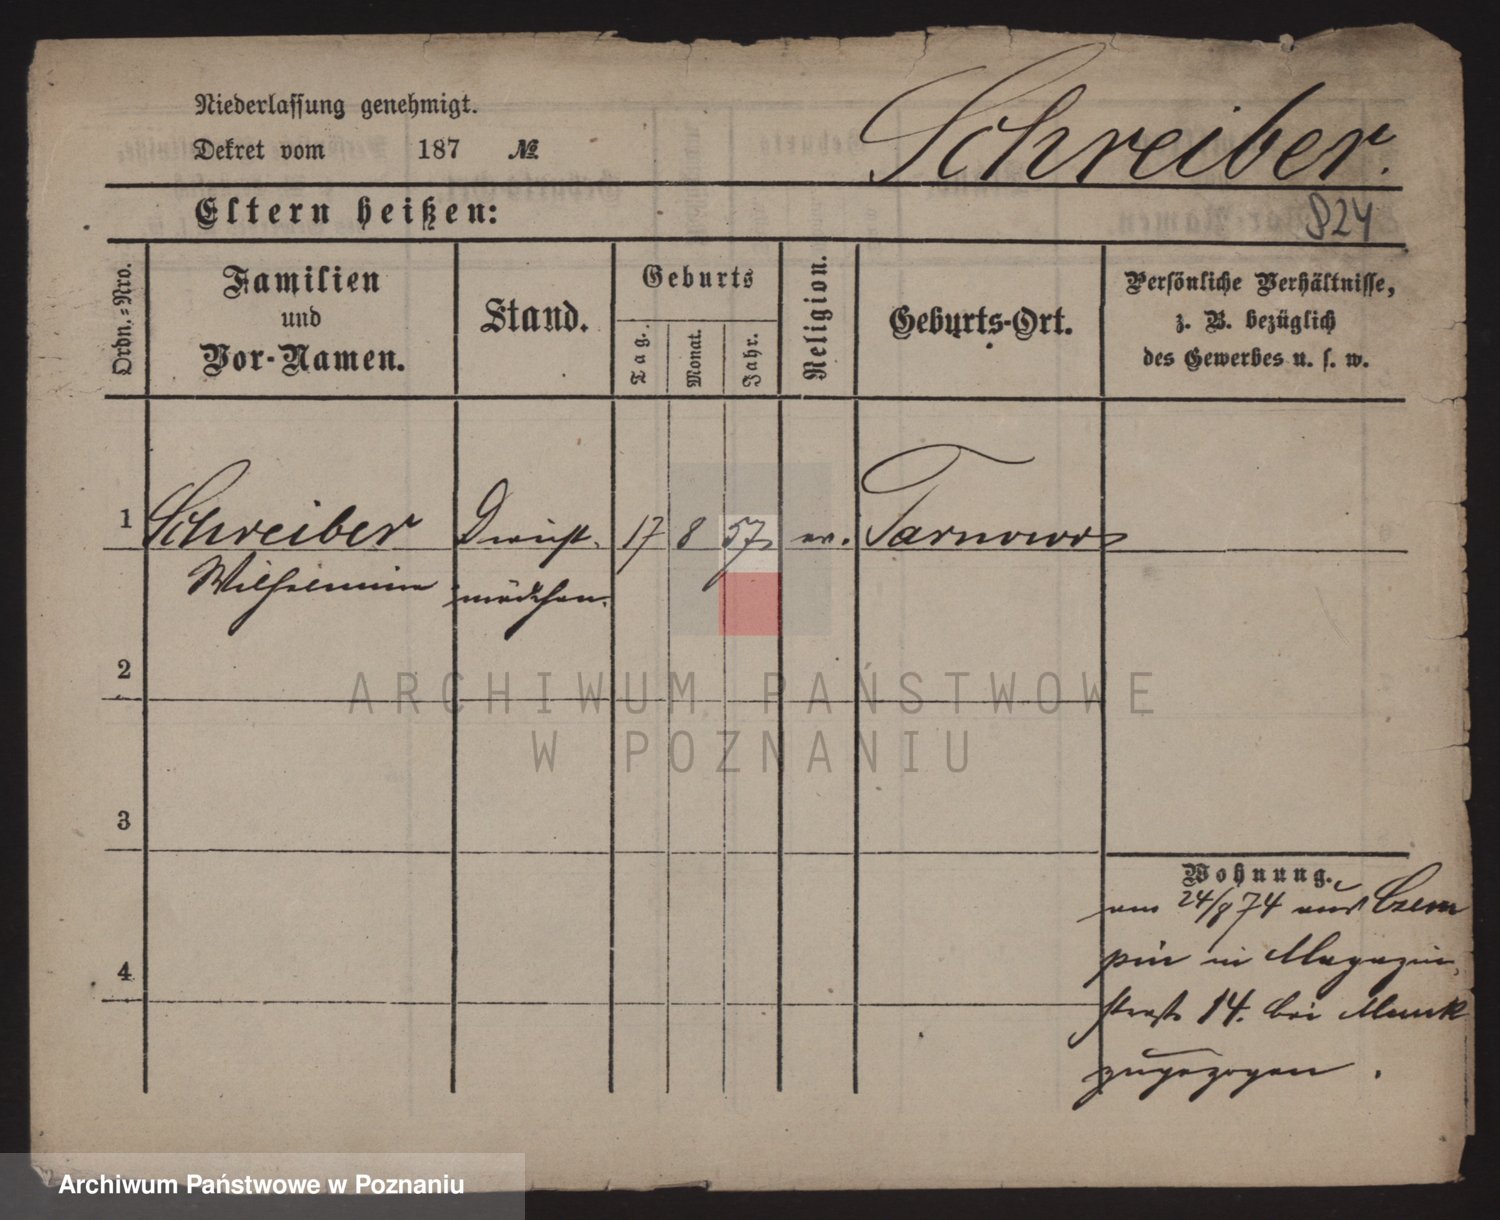 Niederlassung genehmigt.
Dekret vom 187 №
Schreiber.
Eltern heißen:
824
Ordn.-Nro.
Familien
und
Vor-Namen.
Stand.
Geburts
Tag.
Monat.
Jahr.
Religion.
Geburts-Ort.
Persönliche Verhältnisse,
z. B. bezüglich
des Gewerbes u. s. w.
1 Schreiber Dienst- 17 8 57 ev. Tarnowo
Wilhelmine mädchen.
2
ARCHIWUM PAŃSTWOWE
W POZNANIU
3
Wohnung.
am 24/9 74 aus Czem
pin in Magazin
straße 14. bei Munk
zugezogen.
4
Archiwum Państwowe w Poznaniu